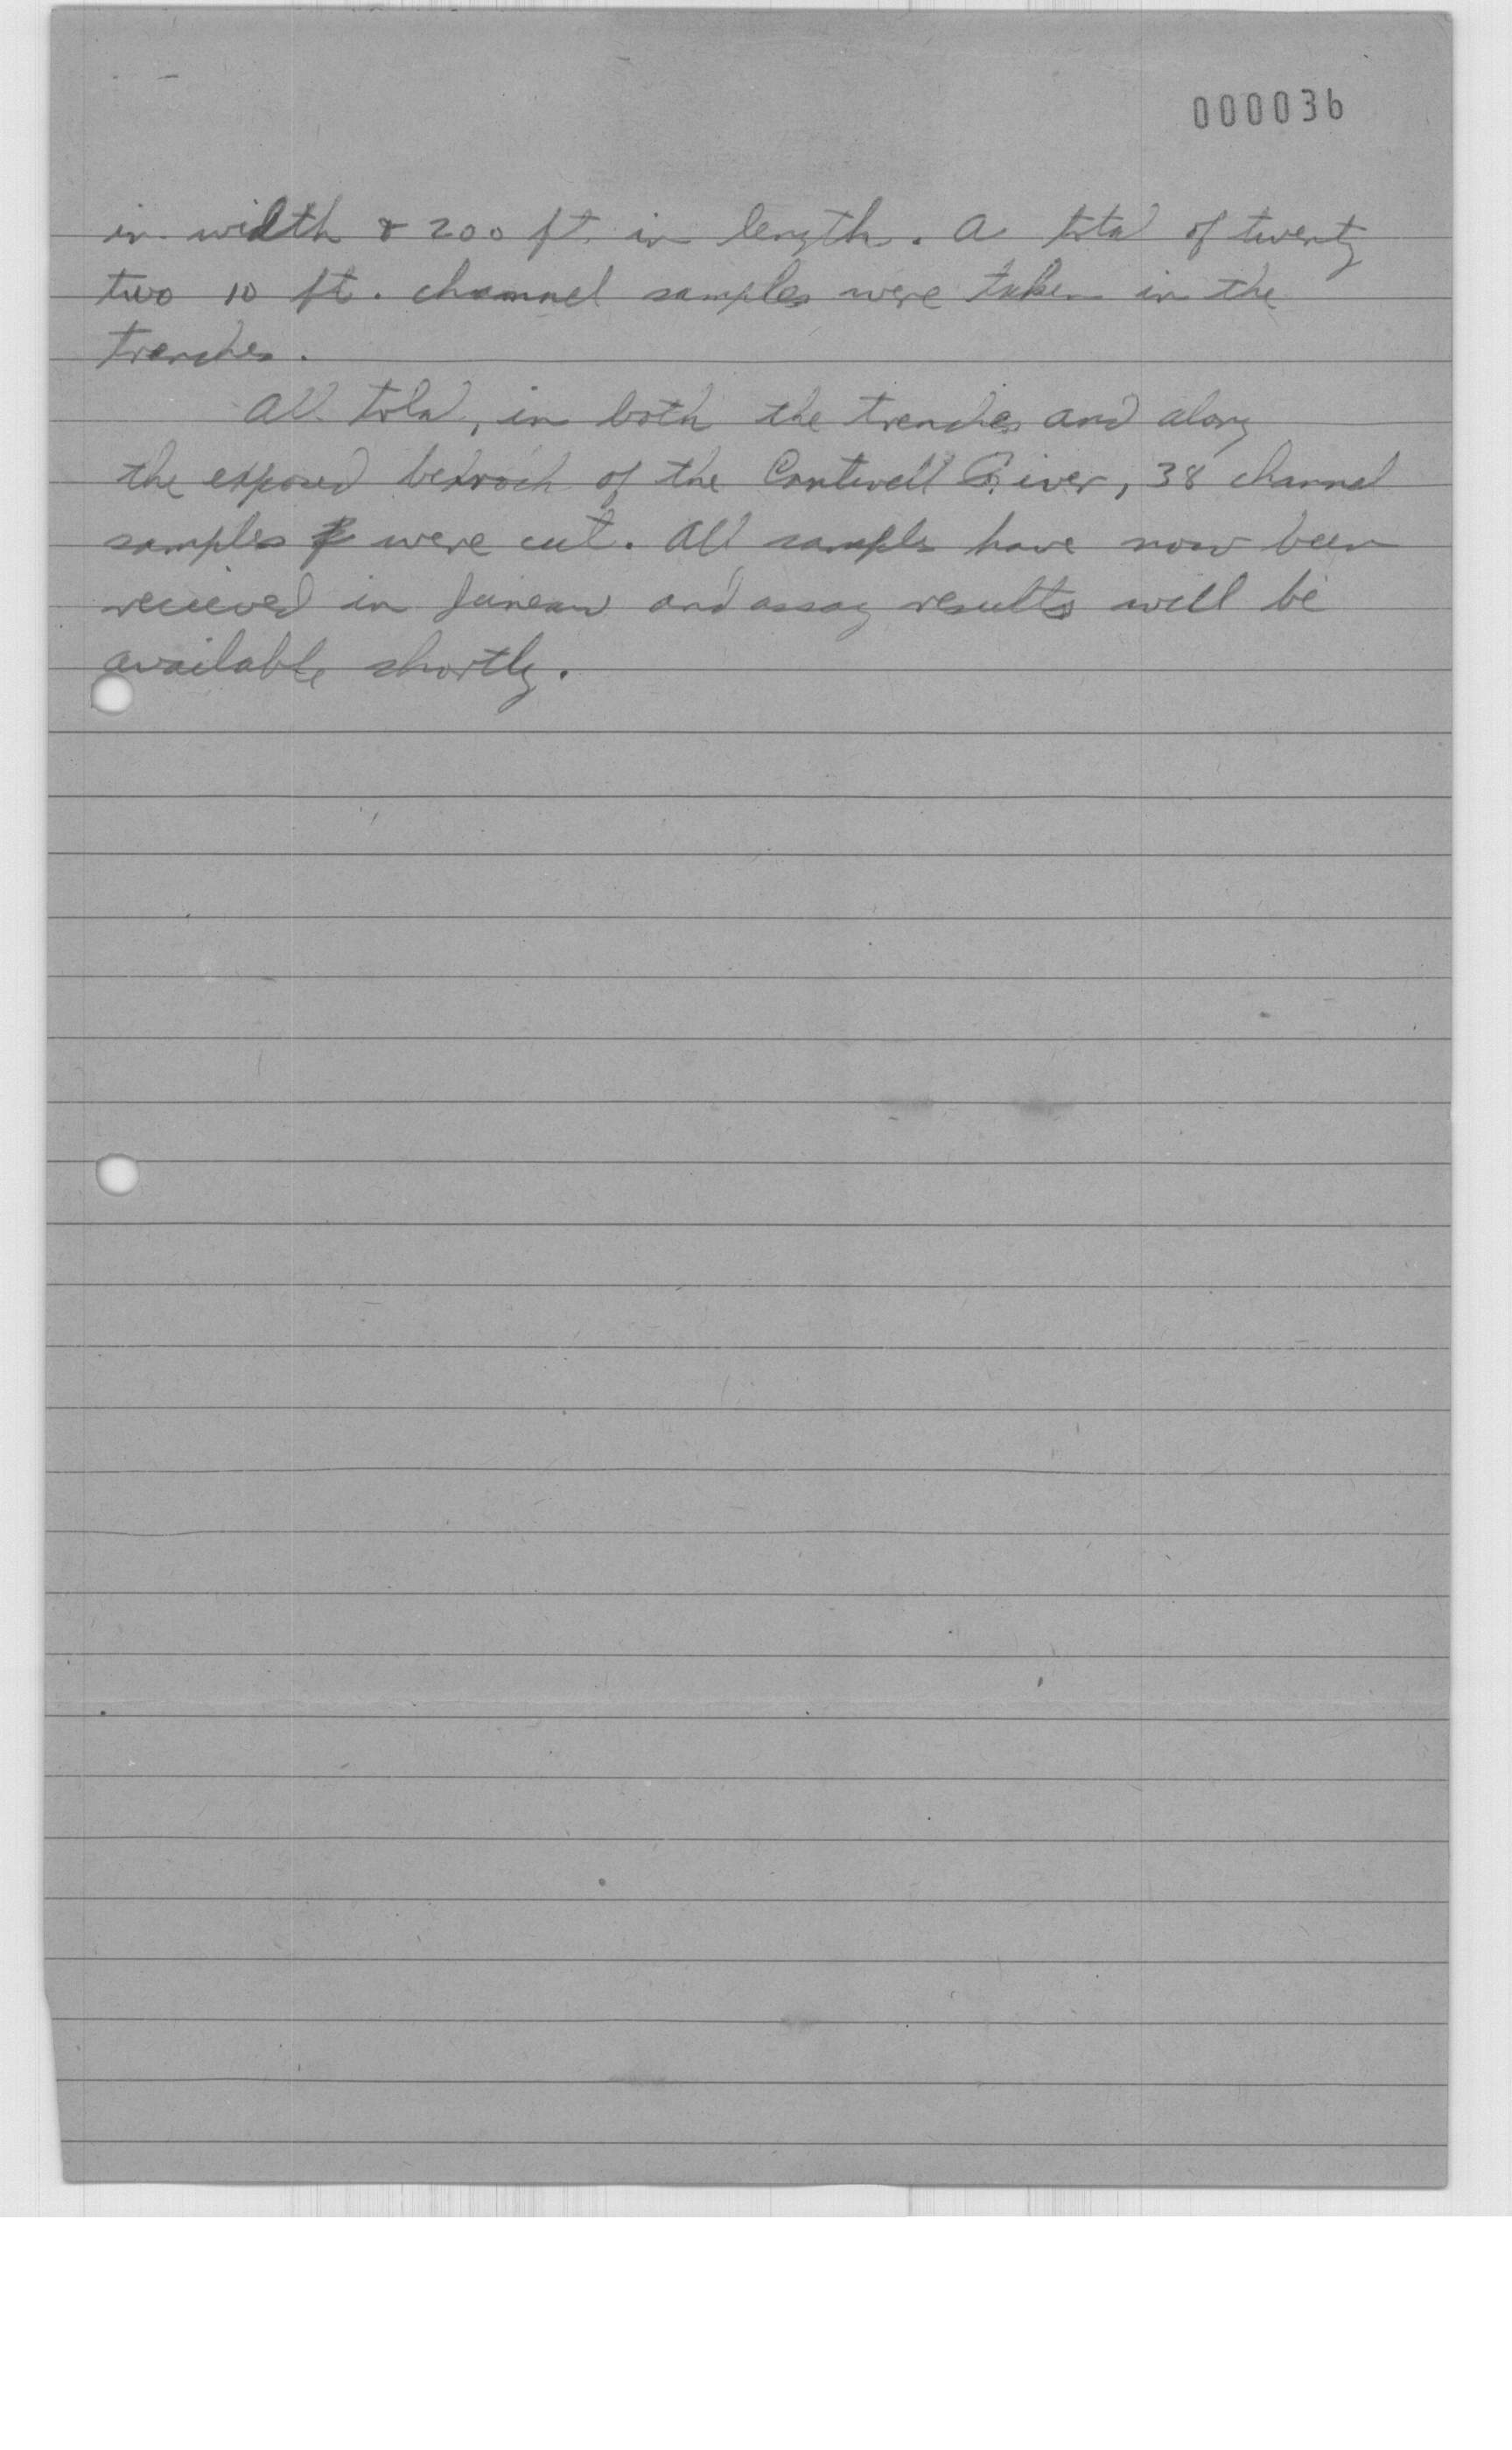 000036
in width & 200 ft. in length. A total of twenty
two 10 ft. channel samples were taken in the
trenches.
All told, in both the trenches and along
the exposed bedrock of the Cantwell River, 38 channel
samples were cut. All samples have now been
recieved in Juneau and assay results will be
available shortly.